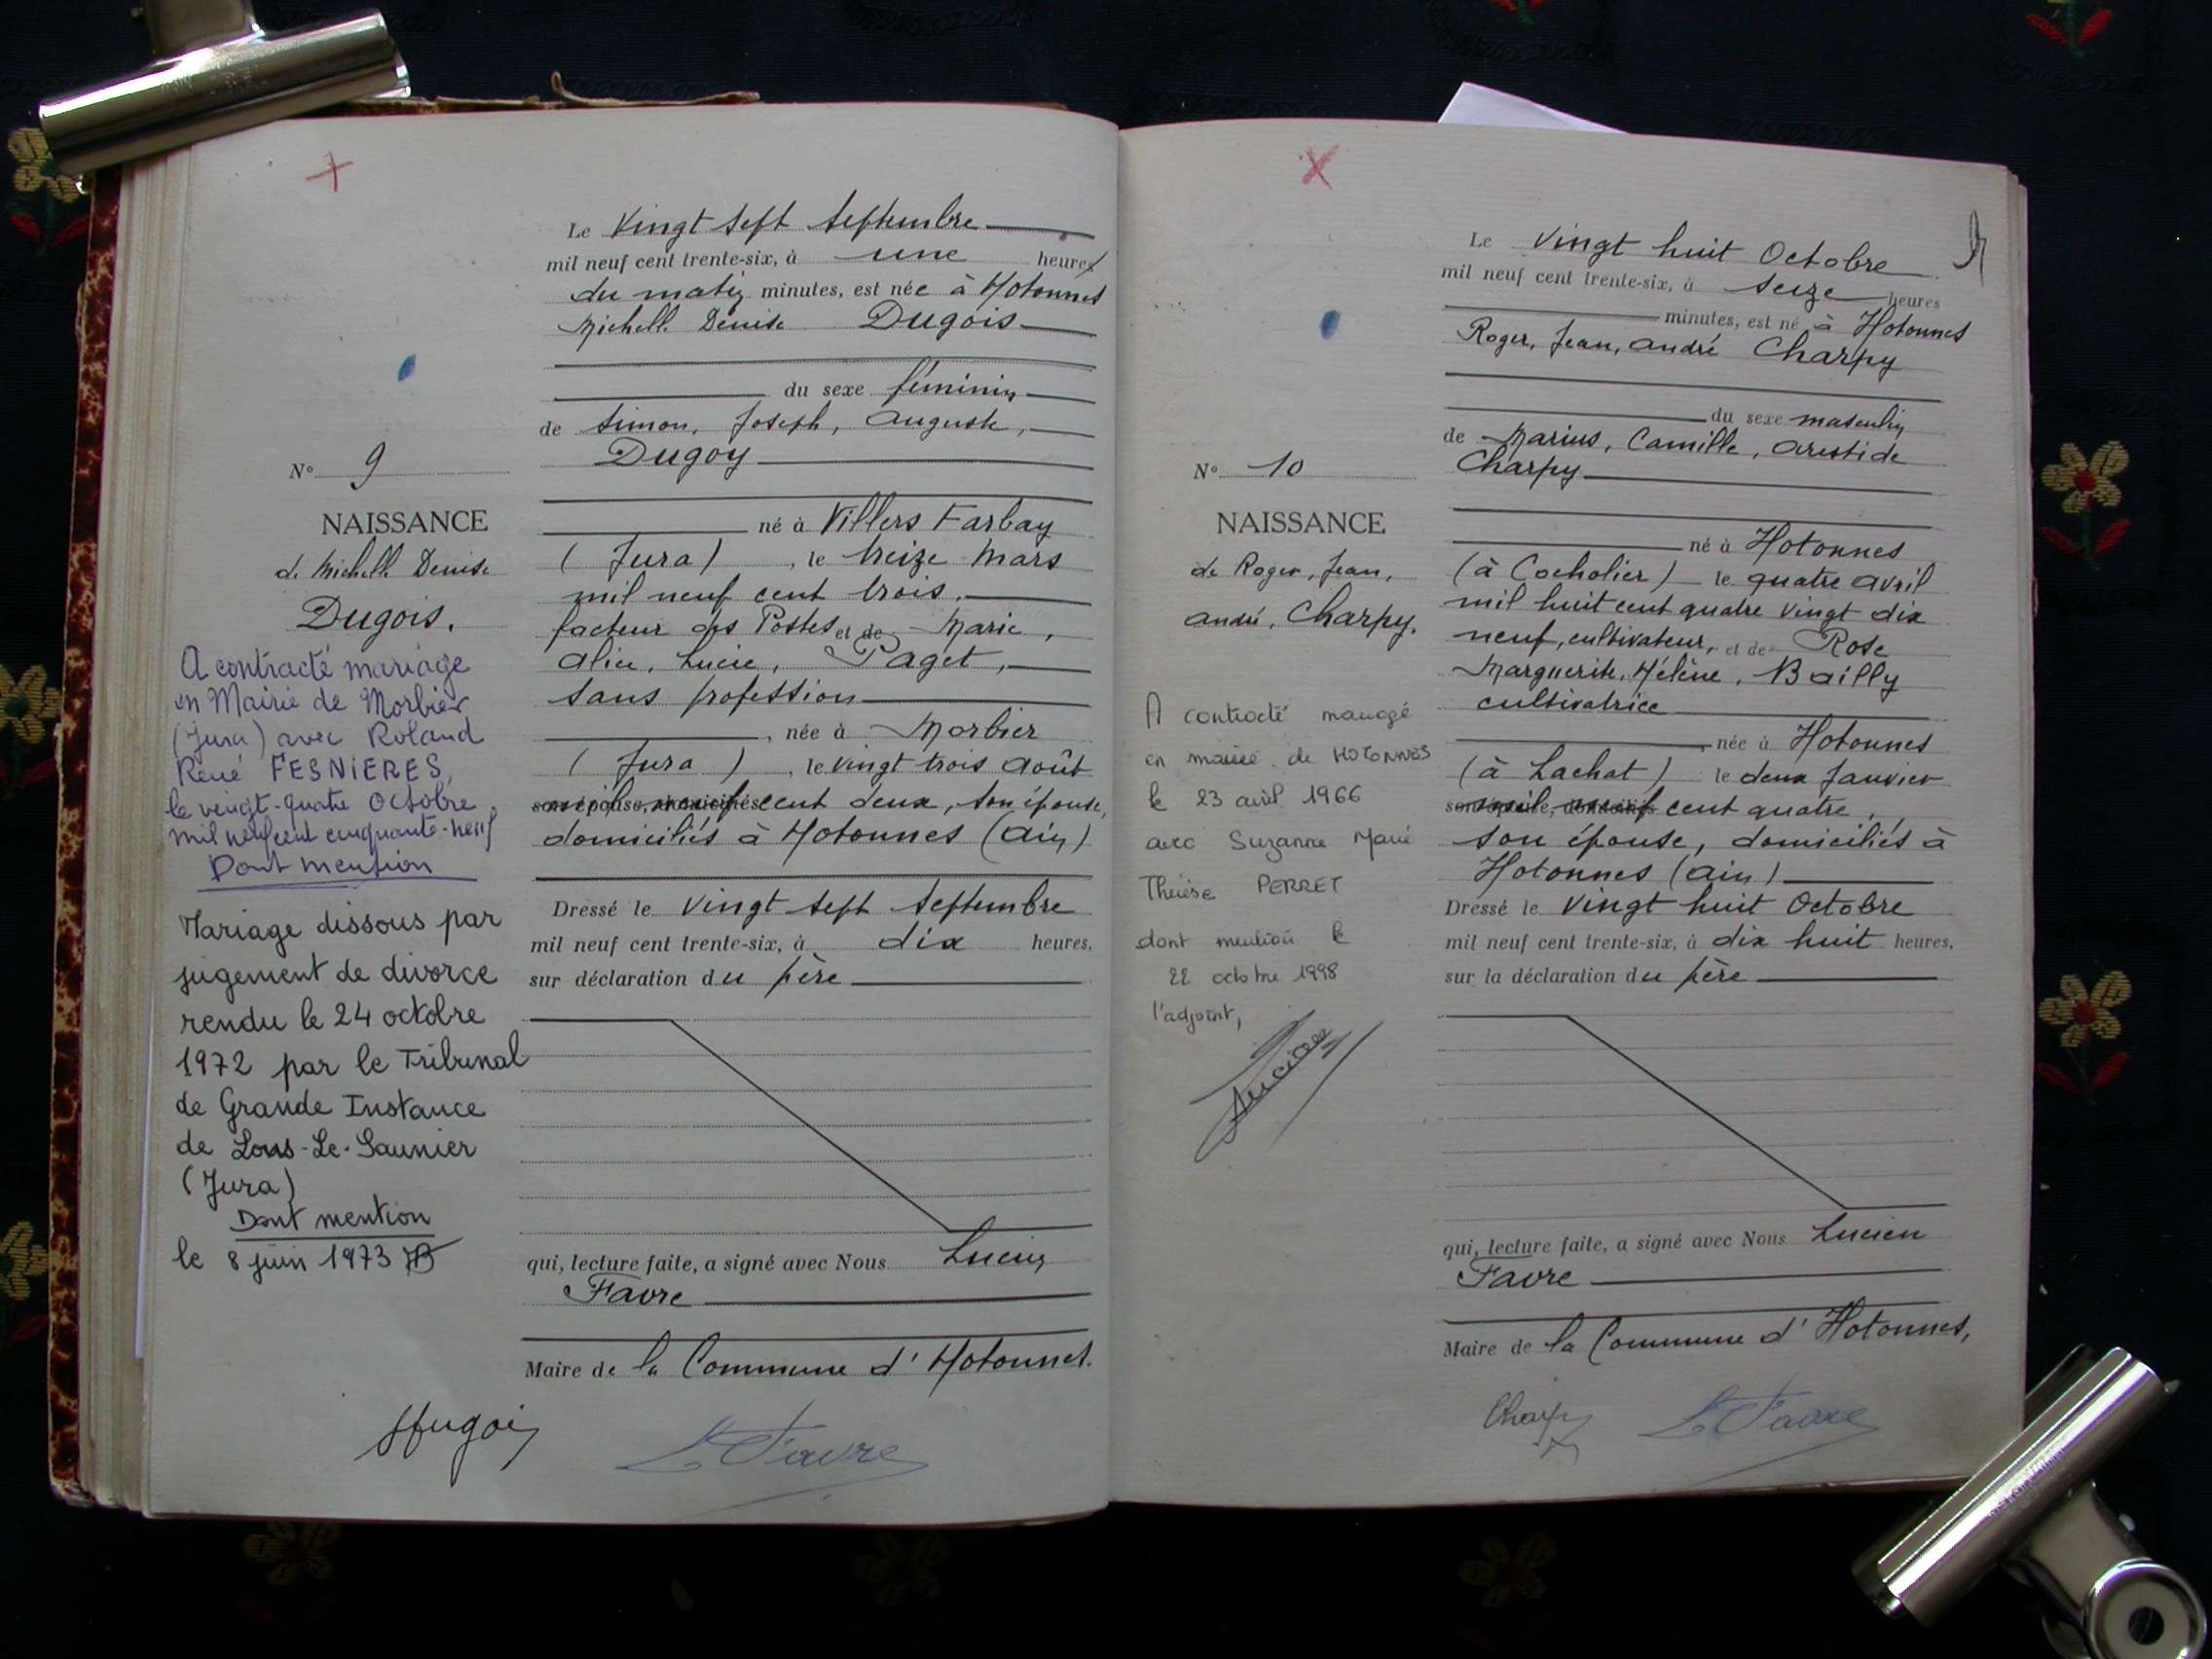 Le Vingt sept Septembre
mil neuf cent trente-six, à une heures
du matin minutes, est née à Hotonnes
Michelle Denise Dugois
du sexe féminin
de Simon, Joseph, Auguste,
Dugoy
N° 9
NAISSANCE
de Michelle Denise
Dugois.
né à Villers Farlay
(Jura), le treize Mars
mil neuf cent trois,
facteur des Postes et de Marie,
Alice, Lucie, Paget,
sans profession
, née à Morbier
(Jura), le vingt trois août
mil neuf cent deux, son épouse,
domiciliés à Hotonnes (Ain)
Dressé le Vingt sept Septembre
mil neuf cent trente-six, à dix heures,
sur déclaration du père
qui, lecture faite, a signé avec Nous Lucien
Favre
Maire de la Commune d'Hotonnes.
L Favre
A contracté mariage
en Mairie de Morbier
(Jura) avec Roland
René FESNIERES,
le vingt-quatre Octobre
mil neuf cent cinquante-neuf
Dont mention
Mariage dissous par
jugement de divorce
rendu le 24 octobre
1972 par le Tribunal
de Grande Instance
de Lons-Le-Saunier
(Jura)
Dont mention
le 8 juin 1973
Le Vingt huit Octobre
mil neuf cent trente-six, à seize heures
minutes, est né à Hotonnes
Roger, Jean, André Charpy
du sexe masculin
de Marius, Camille, Aristide
Charpy
N° 10
NAISSANCE
de Roger, Jean,
André, Charpy.
né à Hotonnes
(à Cocholier) le quatre avril
mil huit cent quatre vingt dix
neuf, cultivateur, et de Rose
Marguerite, Hélène, Bailly
cultivatrice
, née à Hotonnes
(à Lachat) le deux Janvier
mil neuf cent quatre,
son épouse, domiciliés à
Hotonnes (Ain)
Dressé le Vingt huit Octobre
mil neuf cent trente-six, à dix huit heures,
sur la déclaration du père
qui, lecture faite, a signé avec Nous Lucien
Favre
Maire de la Commune d'Hotonnes,
Charpy L Favre
A contracté mariage
en mairie de HOTONNES
le 23 avril 1966
avec Suzanne Marie
Thérèse PERRET
dont mention le
22 octobre 1998
l'adjoint,